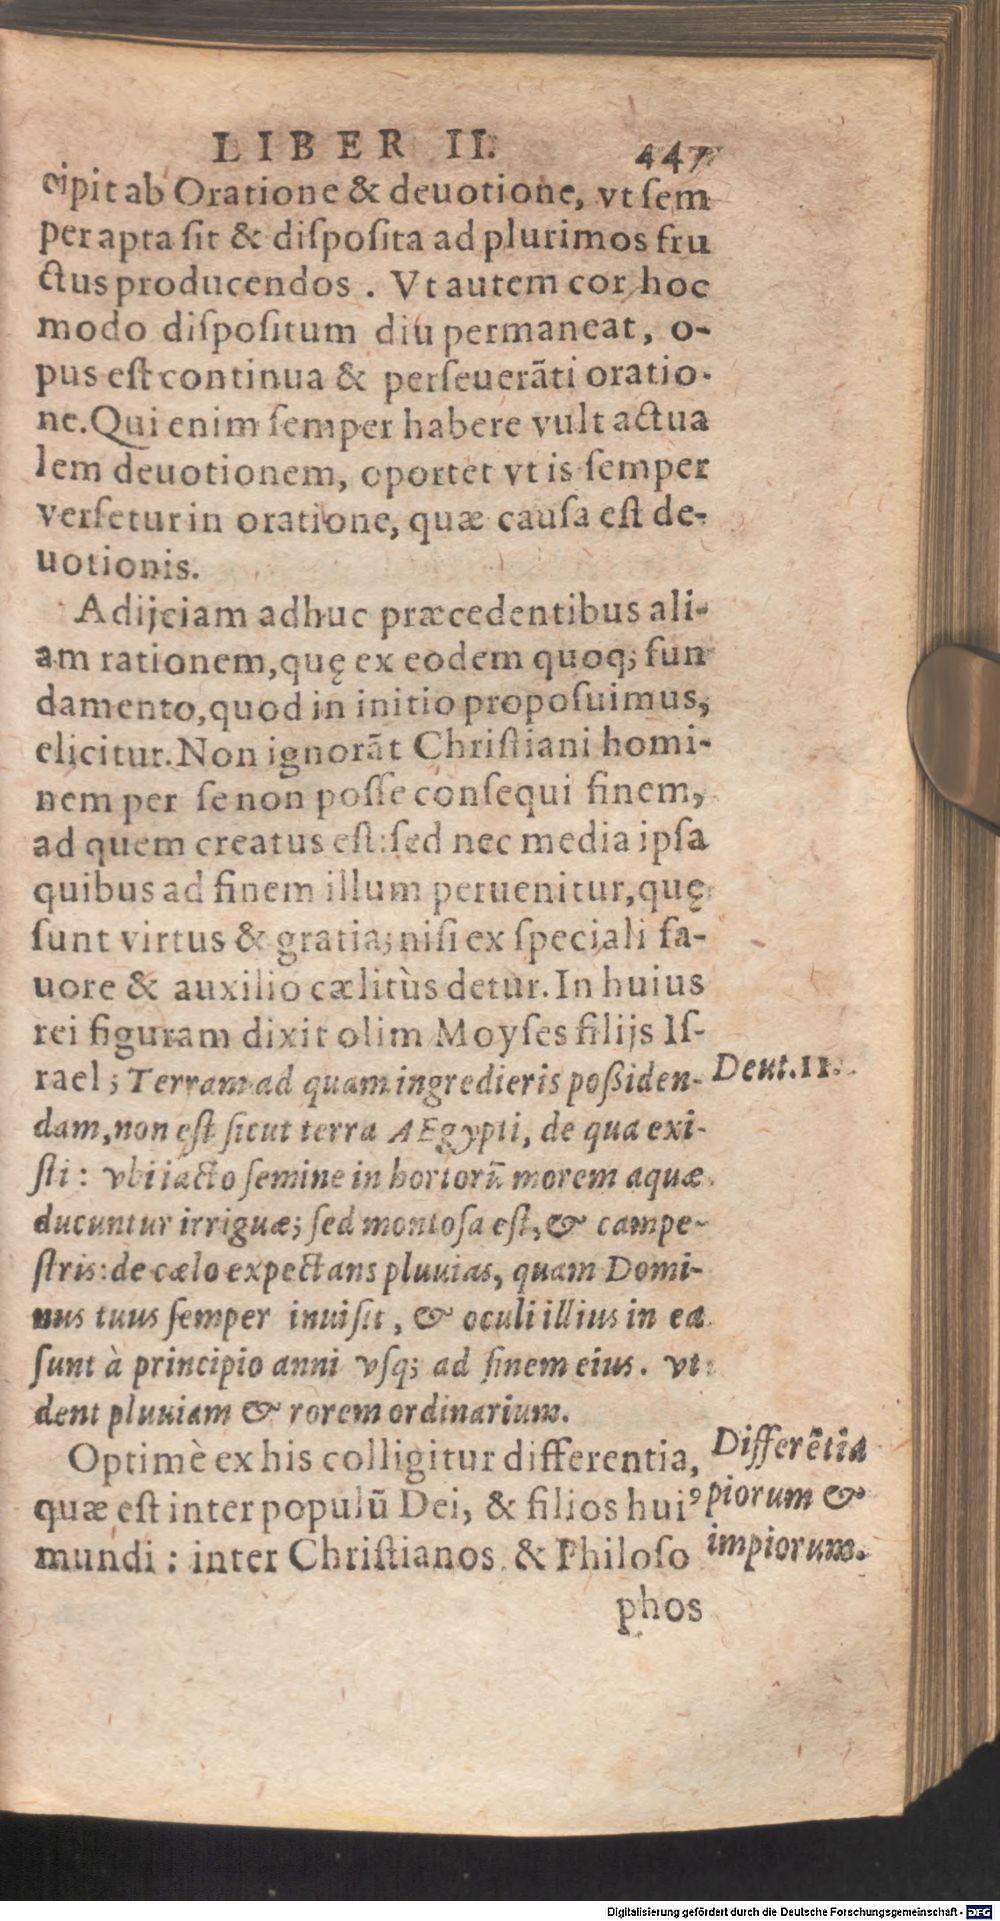 LIBER II. 447
cipit ab Oratione & deuotione, vt sem
per apta sit & disposita ad plurimos fru
ctus producendos . Vt autem cor hoc
modo dispositum diu permaneat, o-
pus est continua & perseuerāti oratio-
ne. Qui enim semper habere vult actua
lem deuotionem, oportet vt is semper
versetur in oratione, quæ causa est de-
uotionis.
Adijciam adhuc præcedentibus ali-
am rationem, quę ex eodem quoq; fun
damento, quod in initio proposuimus,
elicitur. Non ignorāt Christiani homi-
nem per se non posse consequi finem,
ad quem creatus est: sed nec media ipsa
quibus ad finem illum peruenitur, quę
sunt virtus & gratia; nisi ex speciali fa-
uore & auxilio cælitùs detur. In huius
rei figuram dixit olim Moyses filijs Is-
rael; Terram ad quam ingredieris poßiden- Deut. 11.
dam, non est sicut terra AEgypti, de qua exi-
sti: vbi iacto semine in hortorū morem aquæ
ducuntur irriguæ; sed montosa est, & campe-
stris: de cælo expectans pluuias, quam Domi-
nus tuus semper inuisit, & oculi illius in ea
sunt à principio anni vsq; ad finem eius. vt
dent pluuiam & rorem ordinarium.
Optimè ex his colligitur differentia, Differētia
quæ est inter populū Dei, & filios huiꝰ piorum &
mundi: inter Christianos & Philoso impiorum.
phos
Digitalisierung gefördert durch die Deutsche Forschungsgemeinschaft - DFG